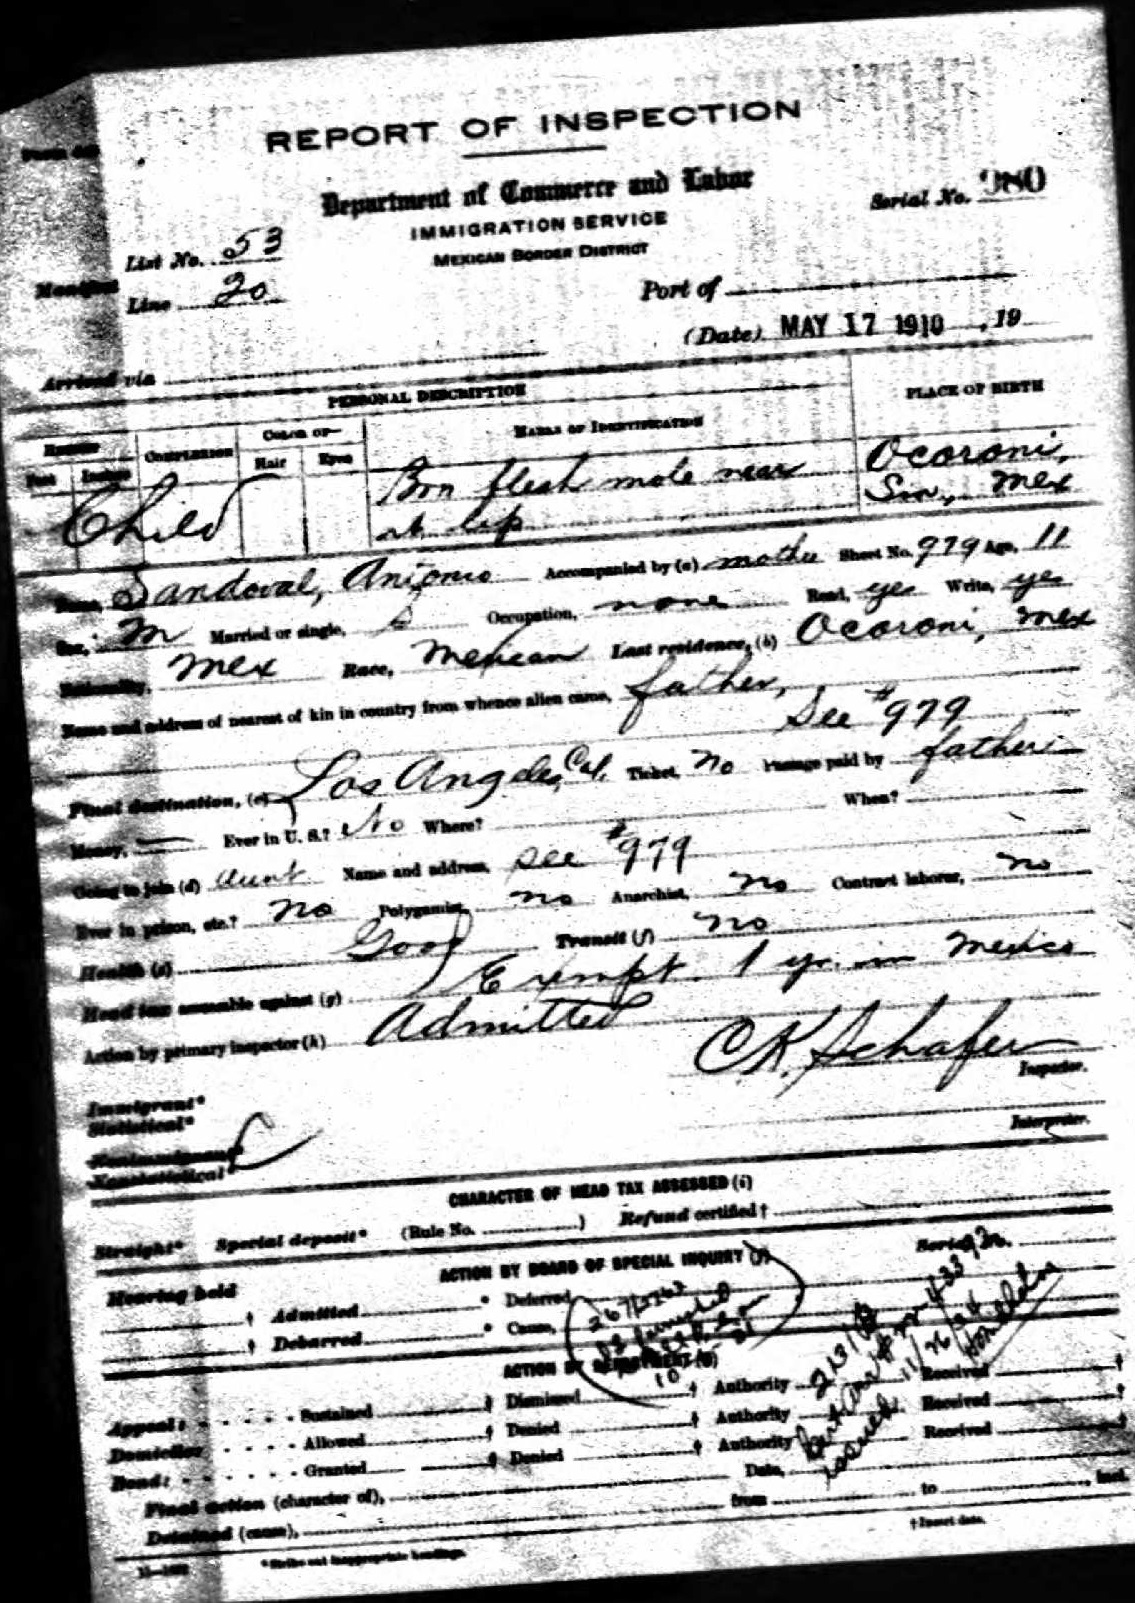 REPORT OF INSPECTION
Department of Commerce and Labor
Serial No. 980
IMMIGRATION SERVICE
MEXICAN BORDER DISTRICT
List No. 53
Manifest
Line 20
Port of
(Date) MAY 17 1910, 19
Arrived via
PERSONAL DESCRIPTION
PLACE OF BIRTH
COLOR OF—
MARKS OF IDENTIFICATION
COMPLEXION
Feet Inches Hair Eyes
Child
Brn flesh mole near
rt. lip
Ocoroni,
Sin, Mex
Name, Sandoval, Antonio Accompanied by (a) mother Sheet No. 979 Age, 11
Sex, M Married or single, S Occupation, none Read, yes Write, yes
Nationality, Mex Race, Mexican Last residence, (b) Ocoroni, Mex
Name and address of nearest of kin in country from whence alien came, father,
See #979
Final destination, (c) Los Angeles, Cal. Ticket, No Passage paid by father
Money, — Ever in U. S.? No Where? When?
Going to join (d) aunt Name and address, see #979
Ever in prison, etc.? no Polygamist, no Anarchist, no Contract laborer, no
Health (e) Good Transit (f) no
Head tax assessable against (g) Exempt. 1 yr. in Mexico
Action by primary inspector (h) Admitted
C.K. Schafer
Inspector.
Immigrant*
Statistical*
Interpreter.
Nonimmigrant*
Nonstatistical*
CHARACTER OF HEAD TAX ASSESSED (i)
Straight* Special deposit* (Rule No. ) Refund certified †
ACTION BY BOARD OF SPECIAL INQUIRY
Serial No.
Hearing held
† Admitted * Deferred
† Debarred * Cause,
ACTION BY DEPARTMENT
Appeal: Sustained † Dismissed † Authority Received †
Domicile: Allowed † Denied † Authority Received †
Bond: Granted † Denied † Authority Received †
issued 11/26/24
Final action (character of), Date,
Detained (cause), from to , incl.
*Strike out inappropriate headings. †Insert date.